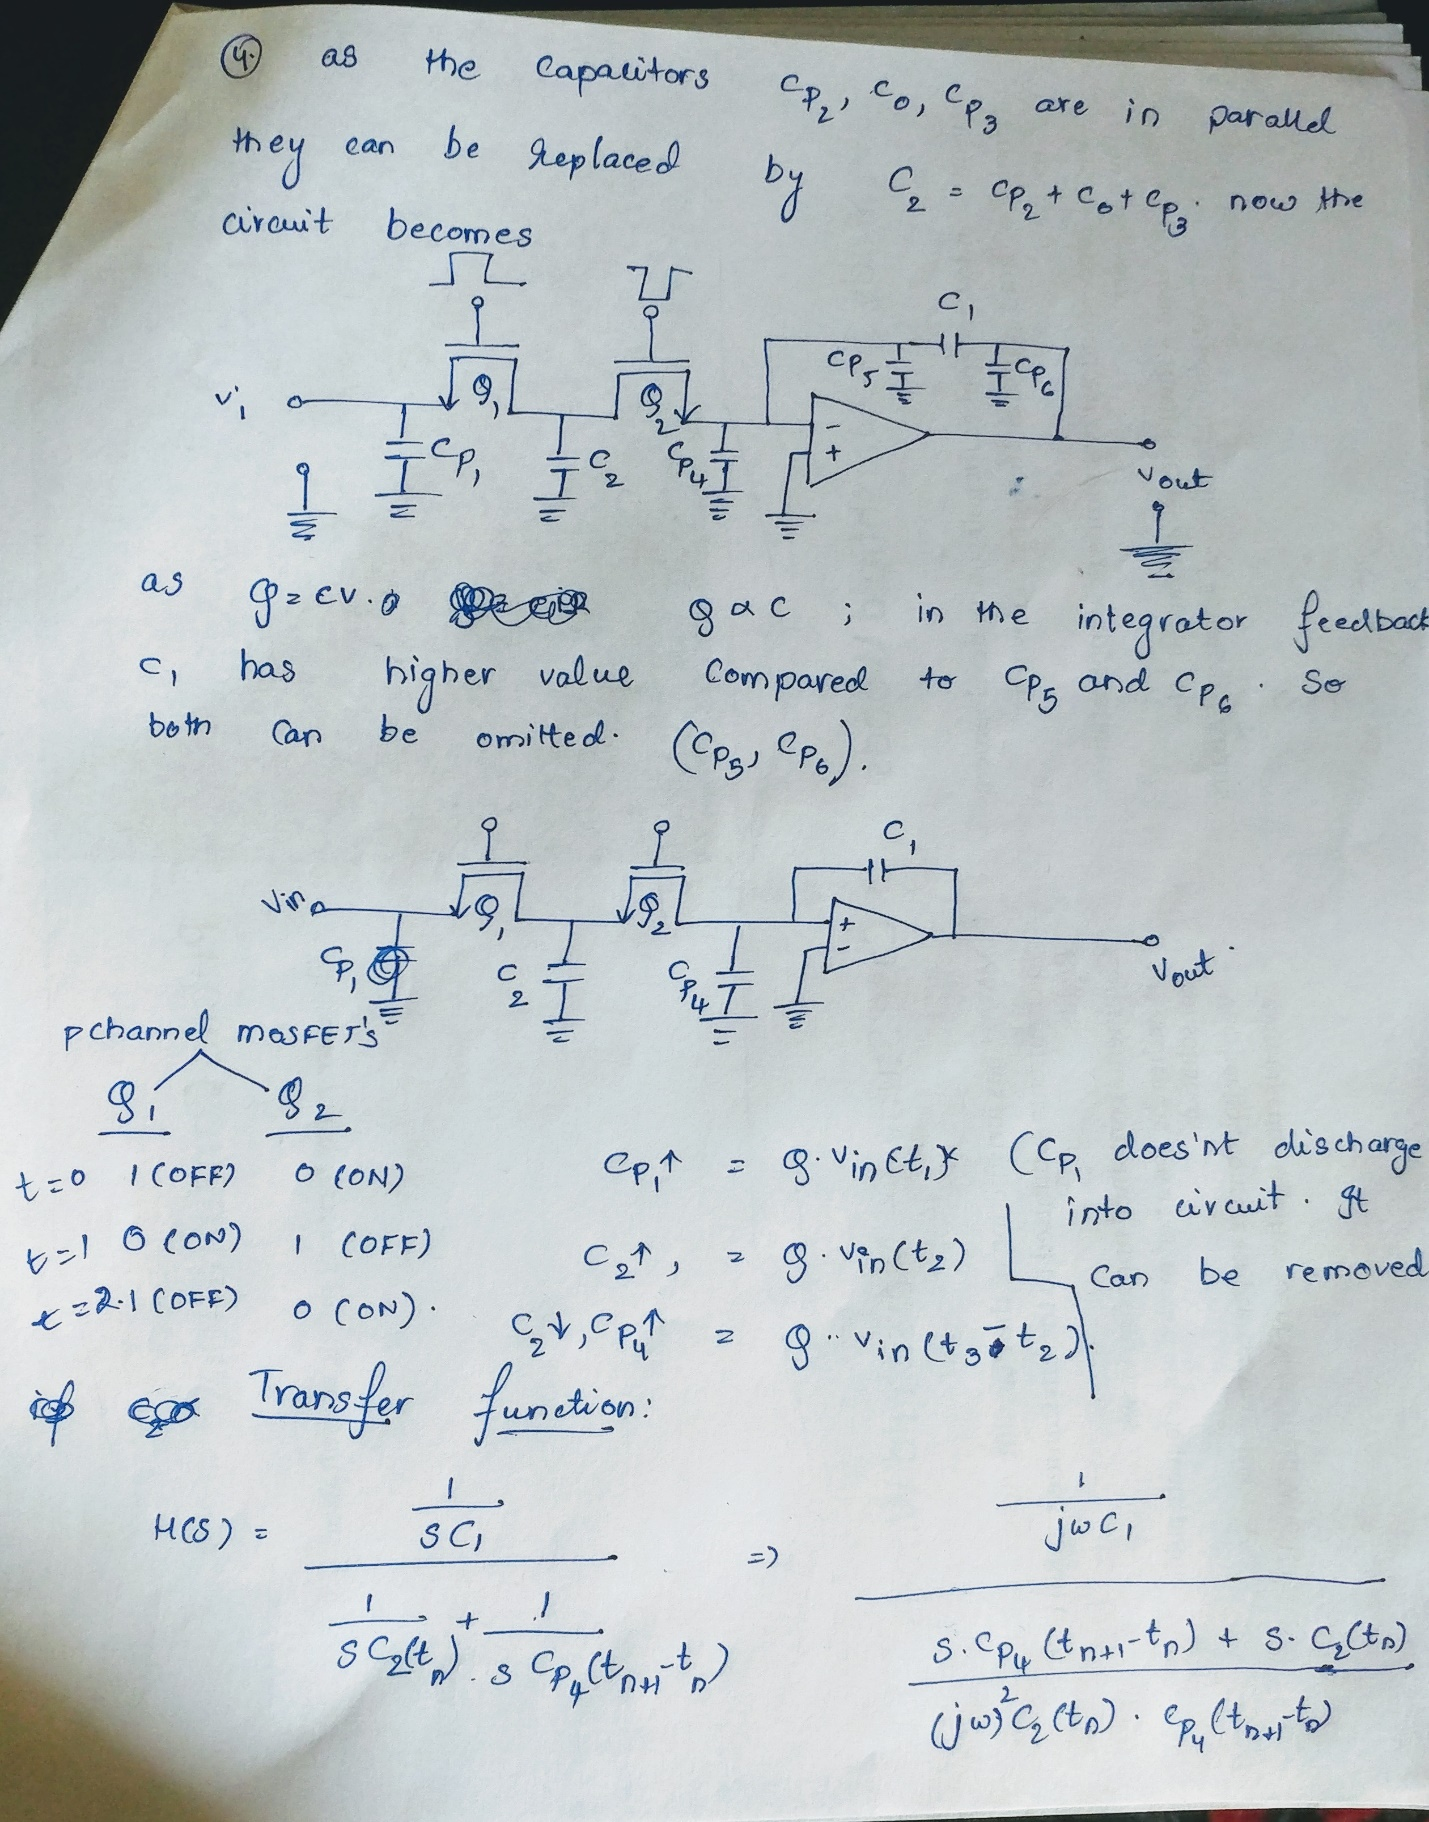 4. as the Capacitors Cp2, C0, Cp3 are in parallel
they can be replaced by C2 = Cp2 + C0 + Cp3. now the
circuit becomes
C1
Cp5 Cp6
Vi Q1 Q2
- +
Cp1 C2 Cp4
Vout
as Q = CV. Q α C ; in the integrator feedback
C1 has higher value Compared to Cp5 and Cp6. So
both Can be omitted. (Cp5, Cp6).
C1
Vin Q1 Q2
+ -
Cp1 C2 Cp4
Vout
pchannel MOSFET's
Q1 Q2
t=0 1 (OFF) 0 (ON) Cp1↑ = Q. Vin (t1) (Cp1 does'nt discharge
into circuit. It
t=1 0 (ON) 1 (OFF) C2↑, = Q. Vin (t2) Can be removed
t=2. 1 (OFF) 0 (ON). C2↓, Cp4↑ = Q.. Vin (t3 - t2).
if Transfer function:
H(S) = 1 / SC1 => 1 / jωC1
1 / SC2(tn) + 1 / S Cp4(tn+1 - tn)
S. Cp4 (tn+1 - tn) + S. C2(tn)
(jω)² C2 (tn) . Cp4 (tn+1 - tn)